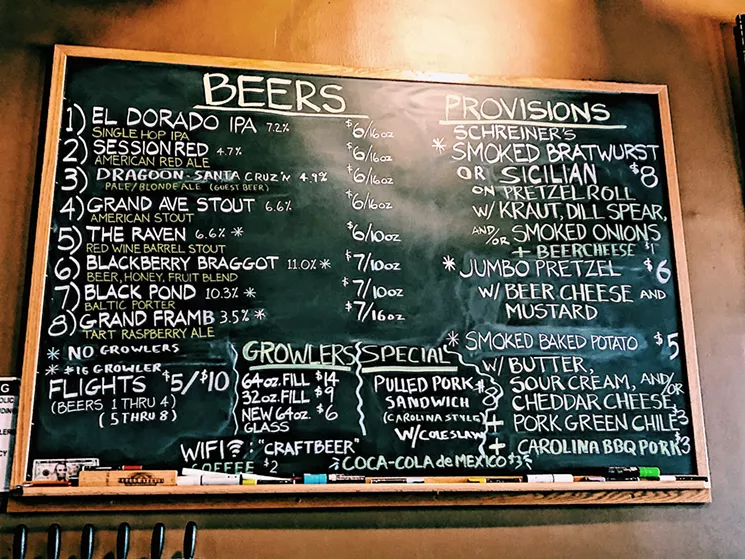 BEERS
1) EL DORADO IPA 7.2% $6/16oz
SINGLE HOP IPA
2) SESSION RED 4.7% $6/16oz
AMERICAN RED ALE
3) DRAGOON-SANTA CRUZ'N 4.9% $6/16oz
PALE/BLONDE ALE (GUEST BEER)
4) GRAND AVE STOUT 6.6% $6/16oz
AMERICAN STOUT
5) THE RAVEN 6.6% * $6/10oz
RED WINE BARREL STOUT
6) BLACKBERRY BRAGGOT 11.0% * $7/10oz
BEER, HONEY, FRUIT BLEND
7) BLACK POND 10.3% * $7/10oz
BALTIC PORTER
8) GRAND FRAMB 3.5% * $7/16oz
TART RASPBERRY ALE
* NO GROWLERS
* $16 GROWLER
FLIGHTS $5/$10
(BEERS 1 THRU 4)
(5 THRU 8)
GROWLERS
64oz. FILL $14
32oz. FILL $9
NEW 64oz. $6
GLASS
SPECIAL
PULLED PORK $8
SANDWICH
(CAROLINA STYLE)
W/COLESLAW
PROVISIONS
SCHREINER'S
* SMOKED BRATWURST
OR SICILIAN $8
ON PRETZEL ROLL
W/ KRAUT, DILL SPEAR,
AND/OR SMOKED ONIONS
+ BEERCHEESE $1
* JUMBO PRETZEL $6
W/ BEER CHEESE AND
MUSTARD
* SMOKED BAKED POTATO $5
W/ BUTTER,
SOUR CREAM, AND/OR
CHEDDAR CHEESE,
+ PORK GREEN CHILE $3
+ CAROLINA BBQ PORK $3
WIFI: "CRAFTBEER"
COFFEE $2
*COCA-COLA de MEXICO $3*